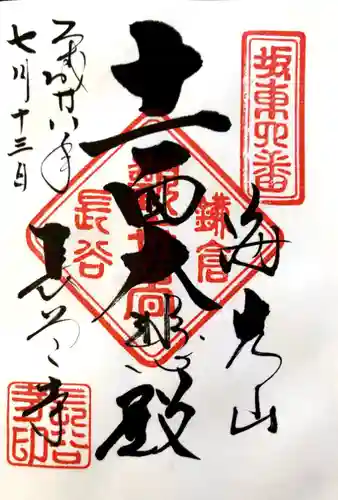 坂東四番
海光山
十一面大悲殿
長谷寺
平成廿八年
七月十三日
鎌倉
観世音
長谷
長谷寺印